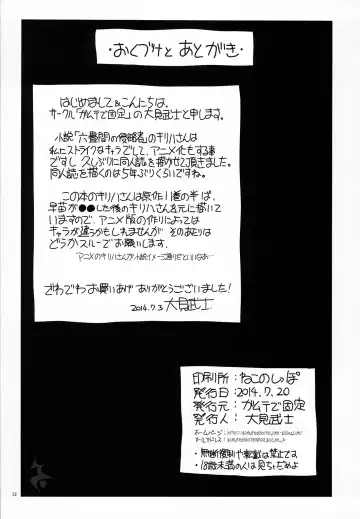 ・おくづけと あとがき・
はじめまして&こんにちは、
サークル「ガムテで固定」の大見武士と申します。
小説「六畳間の侵略者」のキリハさんは
私にストライクなキャラでして、アニメ化もする事
ですし 久しぶりに同人誌を描かせて頂きました。
同人誌を描くのは5年ぶりくらいですね。
この本のキリハさんは原作11巻の半ば、
早苗が●●した後のキリハさんを元に描いて
いますので、アニメ版の作りによっては
キャラが違うかもしれませんが そのあたりは
どうかスルーでお願いします。
アニメのキリハさんが小説イメージ通りだといいなあ…
でわでわお買いあげ ありがとうございました!
2014.7.3 大見武士
印刷所:ねこのしっぽ
発行日:2014.7.20
発行元:ガムテで固定
発行人:大見武士
ホームページ:
メールアドレス:
・無断複製や転載は禁止です
・18歳未満の人は見ちゃだめよ
32